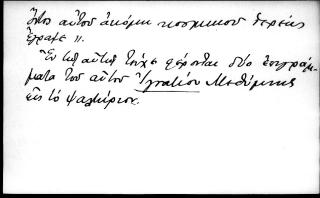 ὄντος αὐτοῦ ἀκόμη κοσμικοῦ ἱερέως
ἔγραψε".
Ἐν τῷ αὐτῷ τεύχει φέρονται δύο ἐπιγράμ-
ματα τοῦ αὐτοῦ Ἰγνατίου Μεθύμνης
εἰς τὸ ψαλτήριον.